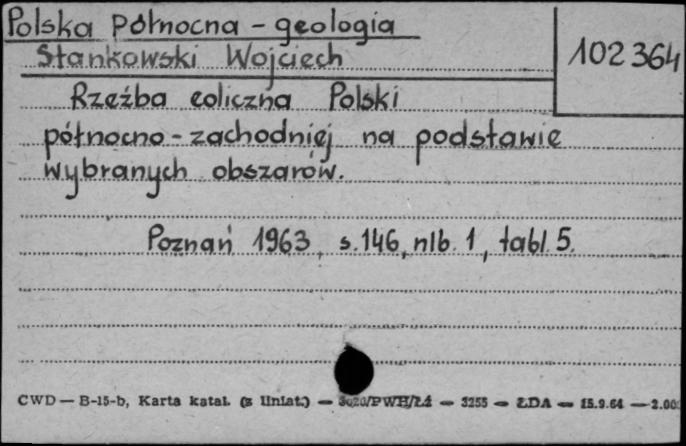 Polska północna - geologia
Stankowski Wojciech
102364
Rzeźba eoliczna Polski
północno-zachodniej na podstawie
wybranych obszarów.
Poznań 1963, s.146, nlb. 1, tabl. 5.
CWD — B-15-b, Karta katal. (z liniat.) — /PWH/Ł4 — 3255 — ŁDA — 15.9.64 — 2.00